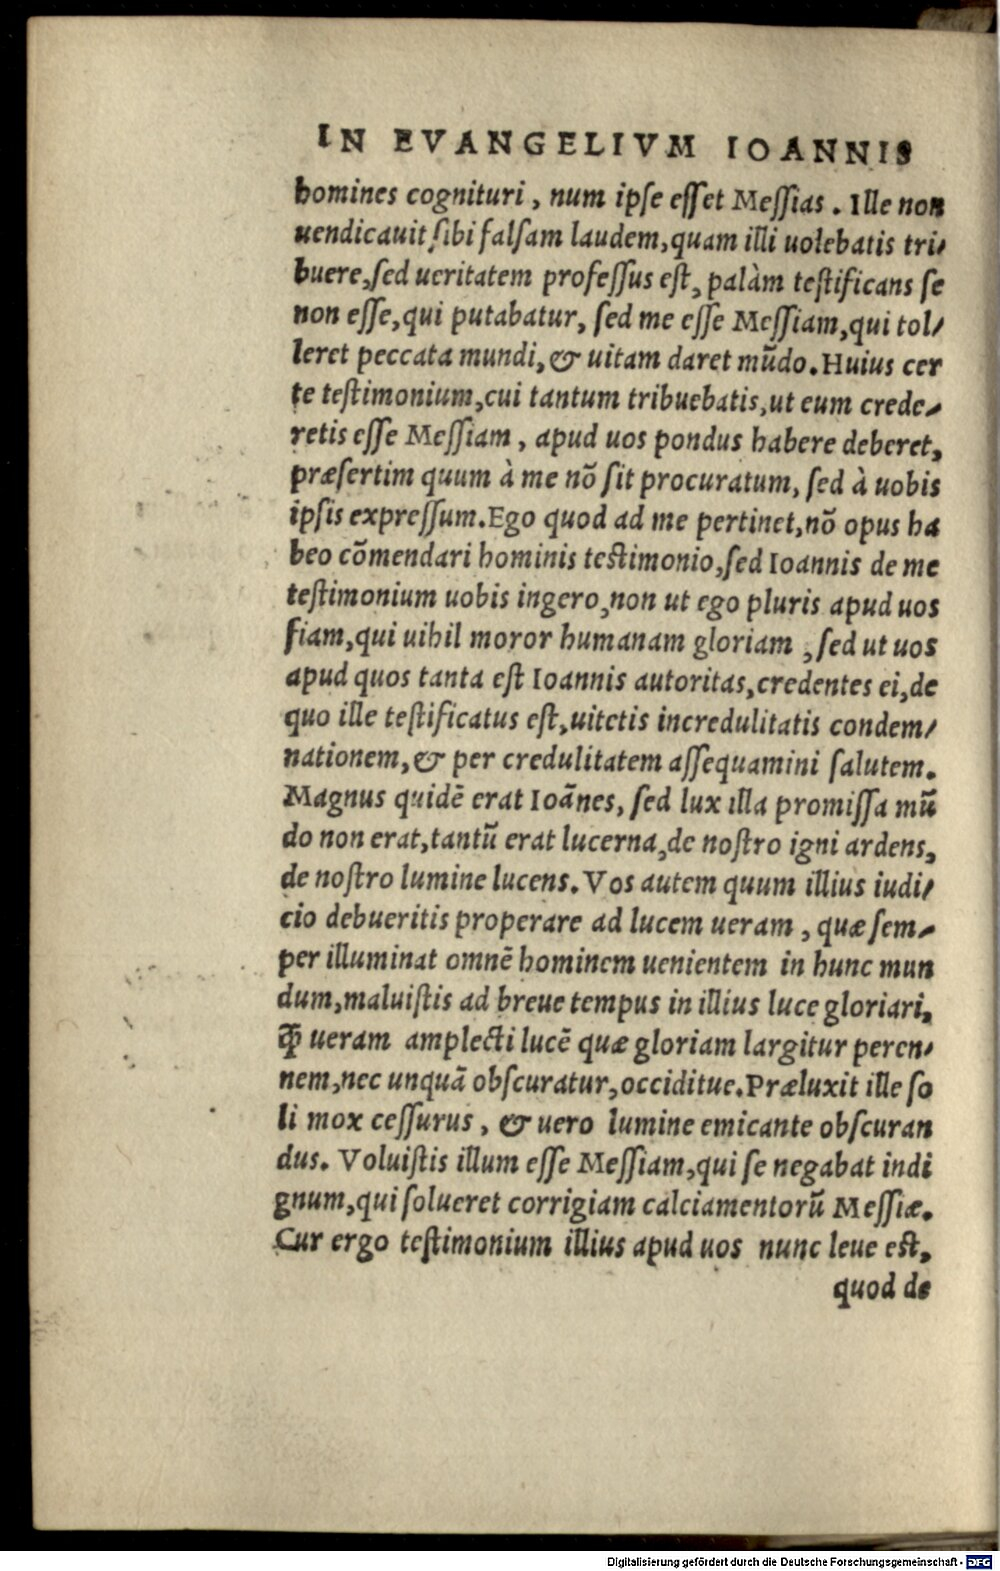 IN EVANGELIVM IOANNIS
homines cognituri, num ipse esset Messias. Ille non
uendicauit sibi falsam laudem, quam illi uolebatis tri-
buere, sed ueritatem professus est, palàm testificans se
non esse, qui putabatur, sed me esse Messiam, qui tol-
leret peccata mundi, & uitam daret mūdo. Huius cer
te testimonium, cui tantum tribuebatis, ut eum crede-
retis esse Messiam, apud uos pondus habere deberet,
præsertim quum à me nō sit procuratum, sed à uobis
ipsis expressum. Ego quod ad me pertinet, nō opus ha
beo cōmendari hominis testimonio, sed Ioannis de me
testimonium uobis ingero, non ut ego pluris apud uos
fiam, qui uihil moror humanam gloriam, sed ut uos
apud quos tanta est Ioannis autoritas, credentes ei, de
quo ille testificatus est, uitetis incredulitatis condem-
nationem, & per credulitatem assequamini salutem.
Magnus quidē erat Ioānes, sed lux illa promissa mū
do non erat, tantū erat lucerna, de nostro igni ardens,
de nostro lumine lucens. Vos autem quum illius iudi-
cio debueritis properare ad lucem ueram, quæ sem-
per illuminat omnē hominem uenientem in hunc mun
dum, maluistis ad breue tempus in illius luce gloriari,
ꝙ̃ ueram amplecti lucē quæ gloriam largitur peren-
nem, nec unquā obscuratur, occiditue. Præluxit ille so
li mox cessurus, & uero lumine emicante obscuran
dus. Voluistis illum esse Messiam, qui se negabat indi
gnum, qui solueret corrigiam calciamentorū Messiæ.
Cur ergo testimonium illius apud uos nunc leue est,
quod de
Digitalisierung gefördert durch die Deutsche Forschungsgemeinschaft - DFG